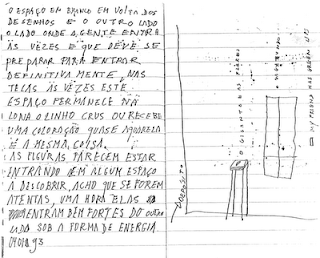 O ESPAÇO EM BRANCO EM VOLTA DOS
DESENHOS E O OUTRO LADO
O LADO ONDE A GENTE ENTRA
ÀS VEZES E QUE DEVE SE
PREPARAR PARA ENTRAR
DEFINITIVAMENTE, NAS
TELAS ÀS VEZES ESTE
ESPAÇO PERMANECE NA
LONA O LINHO CRUS OU RECEBE
UMA COLORAÇÃO QUASE AQUARELA
É A MESMA COISA.
AS FIGURAS PARECEM ESTAR
ENTRANDO EM ALGUM ESPAÇO
A DESCOBRIR, ACHO QUE SE FOREM
ATENTAS, UMA HORA ELAS
ENTRAM BEM FORTES DO OUTRO
LADO SOB A FORMA DE ENERGIA
93
O GIGANTE DAS PEDRAS